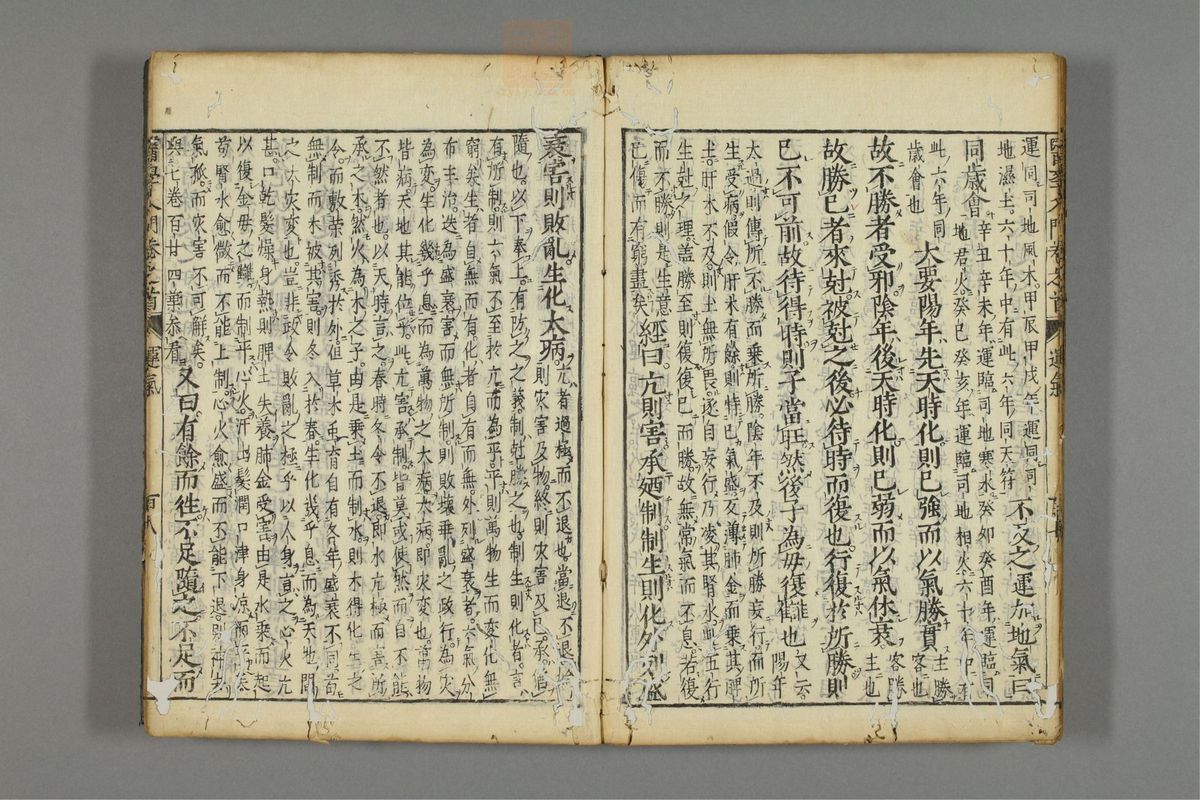 運同司地風木甲辰甲戌年運同司
地濕土六十年中有此六年同天符
不及之運加地氣曰
同歲會
辛丑辛未年運臨司地寒水癸卯癸酉年運臨司
地君火癸巳癸亥年運臨司地相火六十年中有
此六年同
歲會也
大要陽年先天時化則已強而以氣勝實
主勝
客也
故不勝者受邪陰年後天時化則已弱而以氣休衰
客勝
主也
故勝已者來尅被尅之後必待時而復也行復於所勝則
已不可前故待得時則子當旺然後子為母復讎也
又云
陽年
太過則傳所不勝而乘所勝陰年不及則所勝妄行而所
生受病假令肝木有餘則恃已氣盛反薄肺金而乘其脾
土肝木不及則土無所畏遂自妄行乃凌其腎水此五行
生尅之理蓋勝至則復復已而勝故無常氣而不息若復
而不勝則是生意
已傷而有窮盡矣
經曰亢則害承廼制制生則化外列盛
衰害則敗亂生化大病
亢者過極而不退也當退不退始
則災害及物終則災害及已承猶
隨也以下奉上有防之之義制尅勝之也制生則化者言
有所制則六氣不至於亢而為平平則萬物生而變化無
窮矣生者自無而有化者自有而無外列盛衰者六氣分
布主治迭為盛衰害而無所制則敗壞乖亂之政行為災
為變生化幾乎息而為萬物之大病大病即灾变也萬物
皆病天地其能位乎此亢害承制皆莫或使然而自不能
不然者也以天時言之春時冬令不退即水亢極而害所
承之木然火為木之子由是乗土而制水則木得化生之
令而敷荣列秀於外但草木亦自有各年盛衰不同苟
無制而木被其害則冬入於春生化幾乎息而為天地間
之大灾变也豈非政令敗亂之極乎以人身言之心火亢
甚口乾髮燥身熱則脾土失養肺金受害由是水乗而起
以復金母之讎而制平心火汗出髮潤口津身凉而平矣
苟腎水愈微而不能上制心火愈盛而不能下退則神去
氣孤而灾害不可解矣
與七卷百廿四葉叅看
又曰有餘而徃不足隨之不足而
醫學入門卷之首
運氣
百八